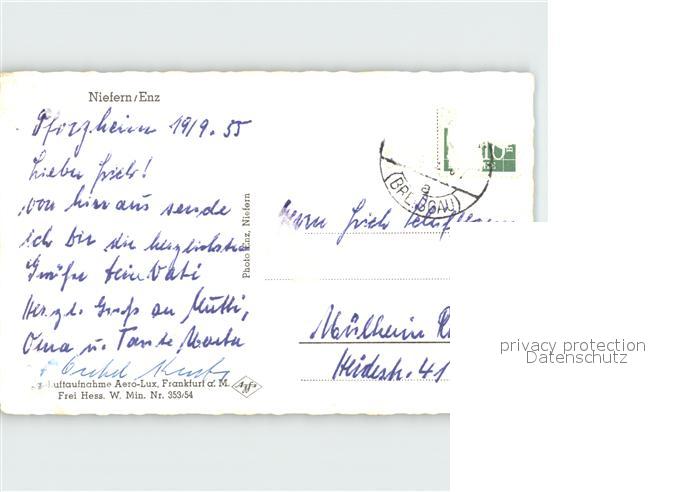 Niefern/Enz
Pforzheim 19/9.55
Lieber Erich!
von hier aus sende
ich Dir die herzlichsten
Grüße Dein Vati
Herzl. Gruß an Mutti,
Oma u. Tante Marta
Onkel
Luftaufnahme Aero-Lux, Frankfurt a. M.
Frei Hess. W. Min. Nr. 353/54
Agfa
Photo Enz, Niefern
10
(BREISGAU)
a
Herrn Erich
Mülheim
Heidestr. 41
privacy protection
Datenschutz